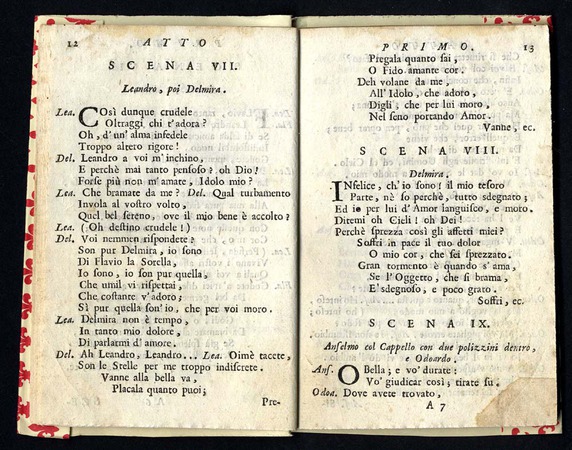 12 ATTO
SCENA VII.
Leandro, poi Delmira.
Lea. COsì dunque crudele
Oltraggi chi t'adora?
Oh, d'un' alma infedele
Troppo altero rigore!
Del. Leandro a voi m'inchino,
E perchè mai tanto pensoso? oh Dio!
Forse più non m'amate, Idolo mio?
Lea. Che bramate da me? Del. Qual turbamento
Invola al vostro volto,
Quel bel sereno, ove il mio bene è accolto?
Lea. (Oh destino crudele!)
Del. Voi nemmen rispondete?
Son pur Delmira, io sono
Di Flavio la Sorella,
Io sono, io son pur quella,
Che umil vi rispettai,
Che costante v'adoro;
Sì pur quella son' io, che per voi moro.
Lea. Delmira non è tempo,
In tanto mio dolore,
Di parlarmi d'amore.
Del. Ah Leandro, Leandro... Lea. Oimè tacete,
Son le Stelle per me troppo indiscrete.
Vanne alla bella va,
Placala quanto puoi;
Pre-
PRIMO. 13
Pregala quanto sai,
O Fido amante cor.
Deh volane da me,
All' Idolo, che adoro,
Digli; che per lui moro,
Nel seno portando Amor.
Vanne, ec.
SCENA VIII.
Delmira.
INfelice, ch' io sono! il mio tesoro
Parte, nè so perchè, tutto sdegnato;
Ed io per lui d'Amor languisco, e moro.
Ditemi oh Cieli! oh Dei!
Perchè sprezza così gli affetti miei?
Soffri in pace il tuo dolor
O mio cor, che sei sprezzato.
Gran tormento è quando s'ama,
Se l'Oggetto, che si brama,
E' sdegnoso, e poco grato.
Soffri, ec.
SCENA IX.
Anselmo col Cappello con due polizzini dentro,
e Odoardo.
Ans. O Bella; e vo' durate:
Vo' giudicar così; tirate su.
Odoa. Dove avete trovato,
A 7